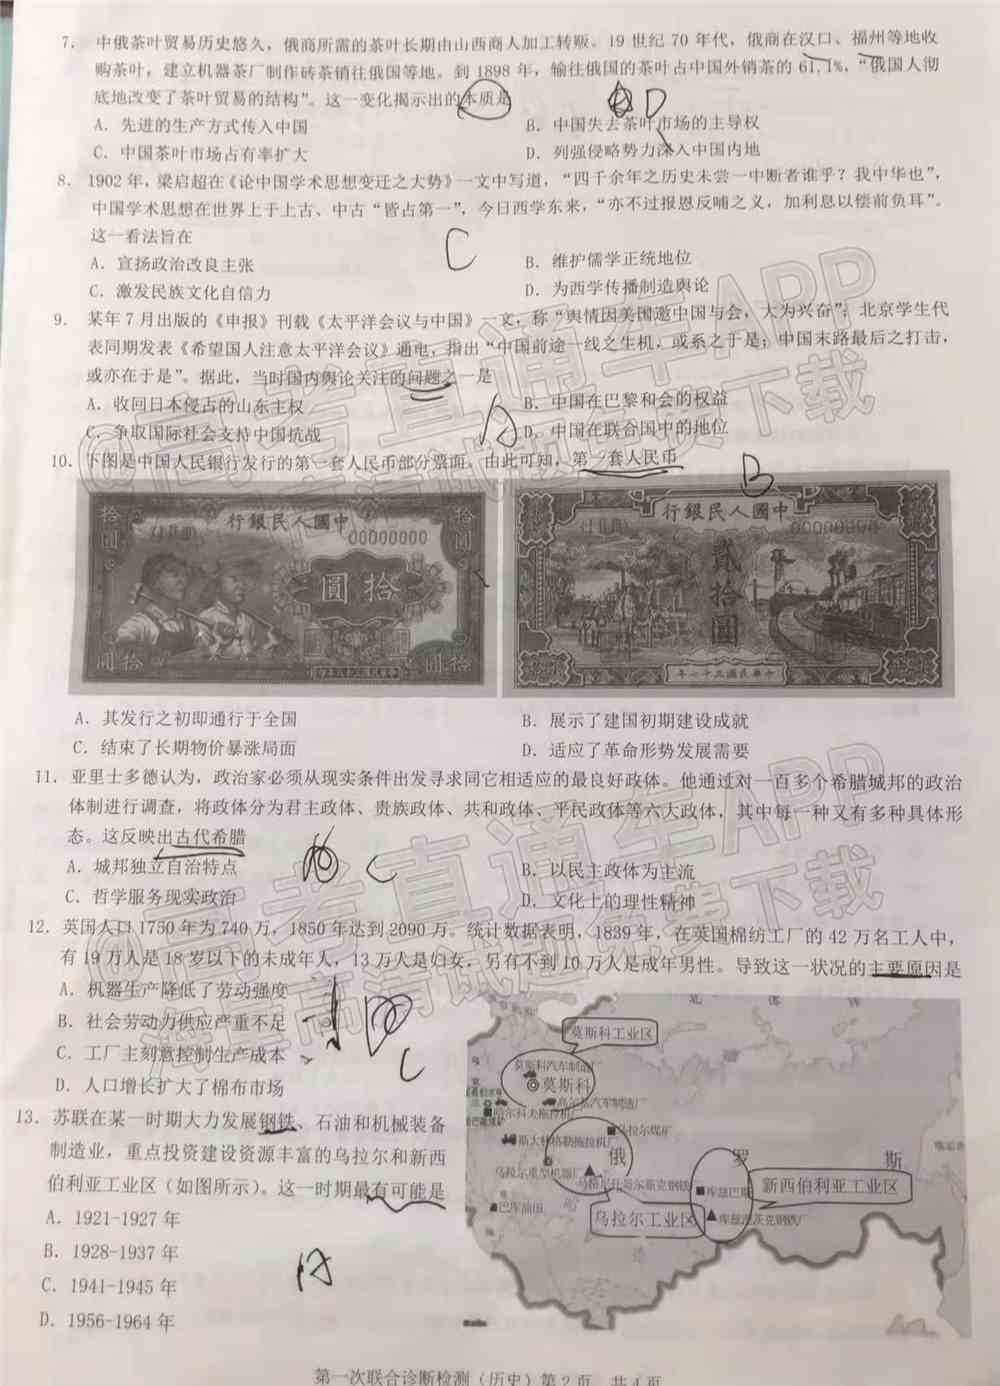 7. 中俄茶叶贸易历史悠久，俄商所需的茶叶长期由山西商人加工转贩。19 世纪 70 年代，俄商在汉口、福州等地收
购茶叶，建立机器茶厂制作砖茶销往俄国等地。到 1898 年，输往俄国的茶叶占中国外销茶的 61.1%，“俄国人彻
底地改变了茶叶贸易的结构”。这一变化揭示出的本质是
D
A. 先进的生产方式传入中国
B. 中国失去茶叶市场的主导权
C. 中国茶叶市场占有率扩大
D. 列强侵略势力深入中国内地
8. 1902 年，梁启超在《论中国学术思想变迁之大势》一文中写道，“四千余年之历史未尝一中断者谁乎？我中华也”，
中国学术思想在世界上于上古、中古“皆占第一”，今日西学东来，“亦不过报恩反哺之义，加利息以偿前负耳”。
这一看法旨在
C
A. 宣扬政治改良主张
B. 维护儒学正统地位
C. 激发民族文化自信力
D. 为西学传播制造舆论
9. 某年 7 月出版的《申报》刊载《太平洋会议与中国》一文，称“舆情因美国邀中国与会，大为兴奋”；北京学生代
表同期发表《希望国人注意太平洋会议》通电，指出“中国前途一线之生机，或系之于是；中国末路最后之打击，
或亦在于是”。据此，当时国内舆论关注的问题之一是
A. 收回日本侵占的山东主权
B. 中国在巴黎和会的权益
C. 争取国际社会支持中国抗战
A
D. 中国在联合国中的地位
10. 下图是中国人民银行发行的第一套人民币部分票面。由此可知，第一套人民币
B
行銀民人國中
00000000
圓拾
拾圓
行銀民人國中
00000000
貳拾圓
年七十三國民華中
A. 其发行之初即通行于全国
B. 展示了建国初期建设成就
C. 结束了长期物价暴涨局面
D. 适应了革命形势发展需要
11. 亚里士多德认为，政治家必须从现实条件出发寻求同它相适应的最良好政体。他通过对一百多个希腊城邦的政治
体制进行调查，将政体分为君主政体、贵族政体、共和政体、平民政体等六大政体，其中每一种又有多种具体形
态。这反映出古代希腊
C
A. 城邦独立自治特点
B. 以民主政体为主流
C. 哲学服务现实政治
D. 文化上的理性精神
12. 英国人口 1750 年为 740 万，1850 年达到 2090 万。统计数据表明，1839 年，在英国棉纺工厂的 42 万名工人中，
有 19 万人是 18 岁以下的未成年人，13 万人是妇女，另有不到 10 万人是成年男性。导致这一状况的主要原因是
A. 机器生产降低了劳动强度
B. 社会劳动力供应严重不足
C. 工厂主刻意控制生产成本
C
D. 人口增长扩大了棉布市场
13. 苏联在某一时期大力发展钢铁、石油和机械装备
制造业，重点投资建设资源丰富的乌拉尔和新西
伯利亚工业区（如图所示）。这一时期最有可能是
A. 1921-1927 年
B. 1928-1937 年
C. 1941-1945 年
D. 1956-1964 年
莫斯科工业区
莫斯科汽车制造厂
莫斯科
高尔基汽车制造厂
哈尔科夫拖拉机厂
乌拉尔煤矿
斯大林格勒拖拉机厂
俄 罗 斯
乌拉尔重型机器厂
马格尼托哥尔斯克钢铁厂
库兹巴斯
新西伯利亚工业区
巴库油田
乌拉尔工业区
库兹涅茨克钢铁厂
第一次联合诊断检测（历史）第 2 页 共 4 页
@高考直通车APP
海量高清试题免费下载
@高考直通车APP
海量高清试题免费下载